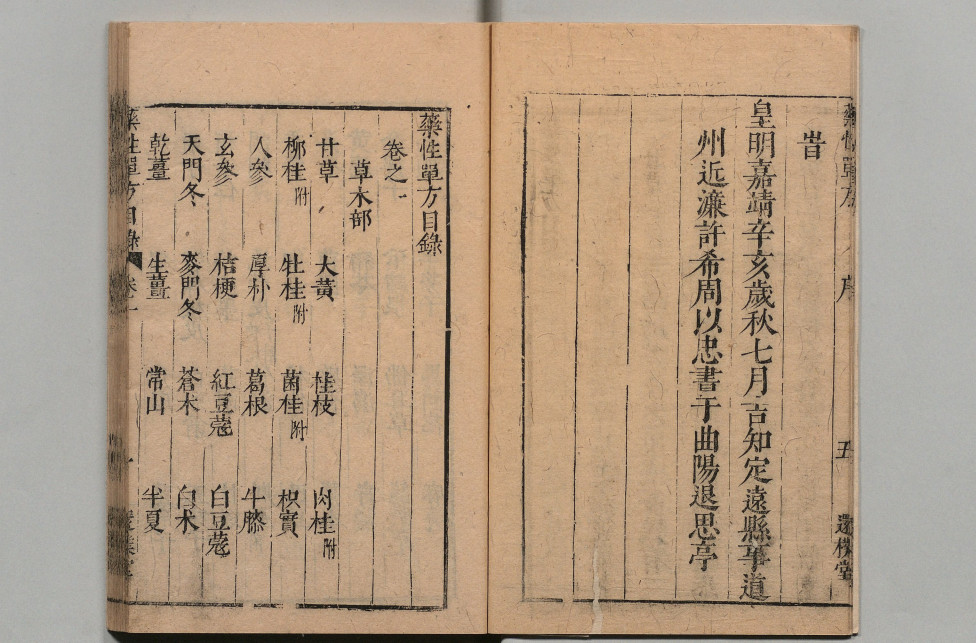 藥性單方 序 五
旹
皇明嘉靖辛亥歲秋七月吉知定遠縣事道
州近濂許希周以忠書于曲陽退思亭
藥性單方目錄
卷之一
草木部
甘草 大黃 桂枝 肉桂附
柳桂附 牡桂附 菌桂附 枳實
人參 厚朴 葛根 牛膝
玄參 桔梗 紅豆蔻 白豆蔻
天門冬 麥門冬 蒼术 白术
乾薑 生薑 常山 半夏
藥性單方目錄 卷一 一